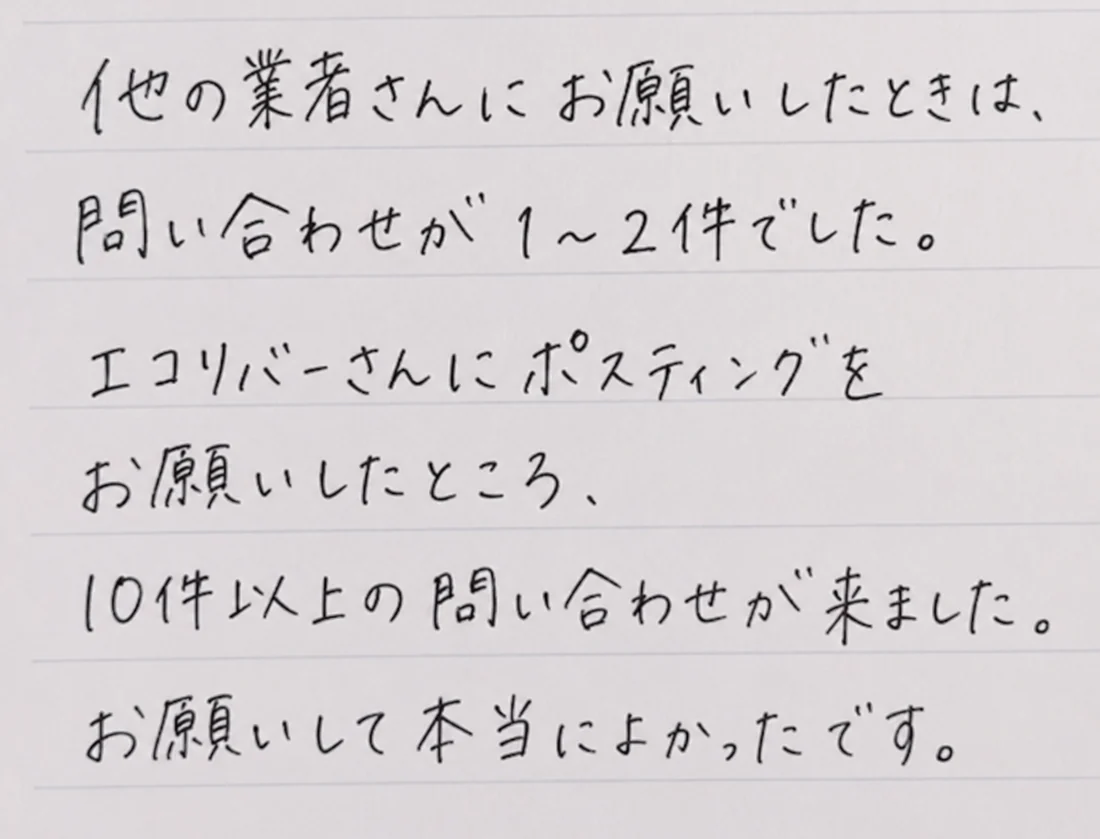 他の業者さんにお願いしたときは、
問い合わせが1～2件でした。
エコリバーさんにポスティングを
お願いしたところ、
10件以上の問い合わせが来ました。
お願いして本当によかったです。